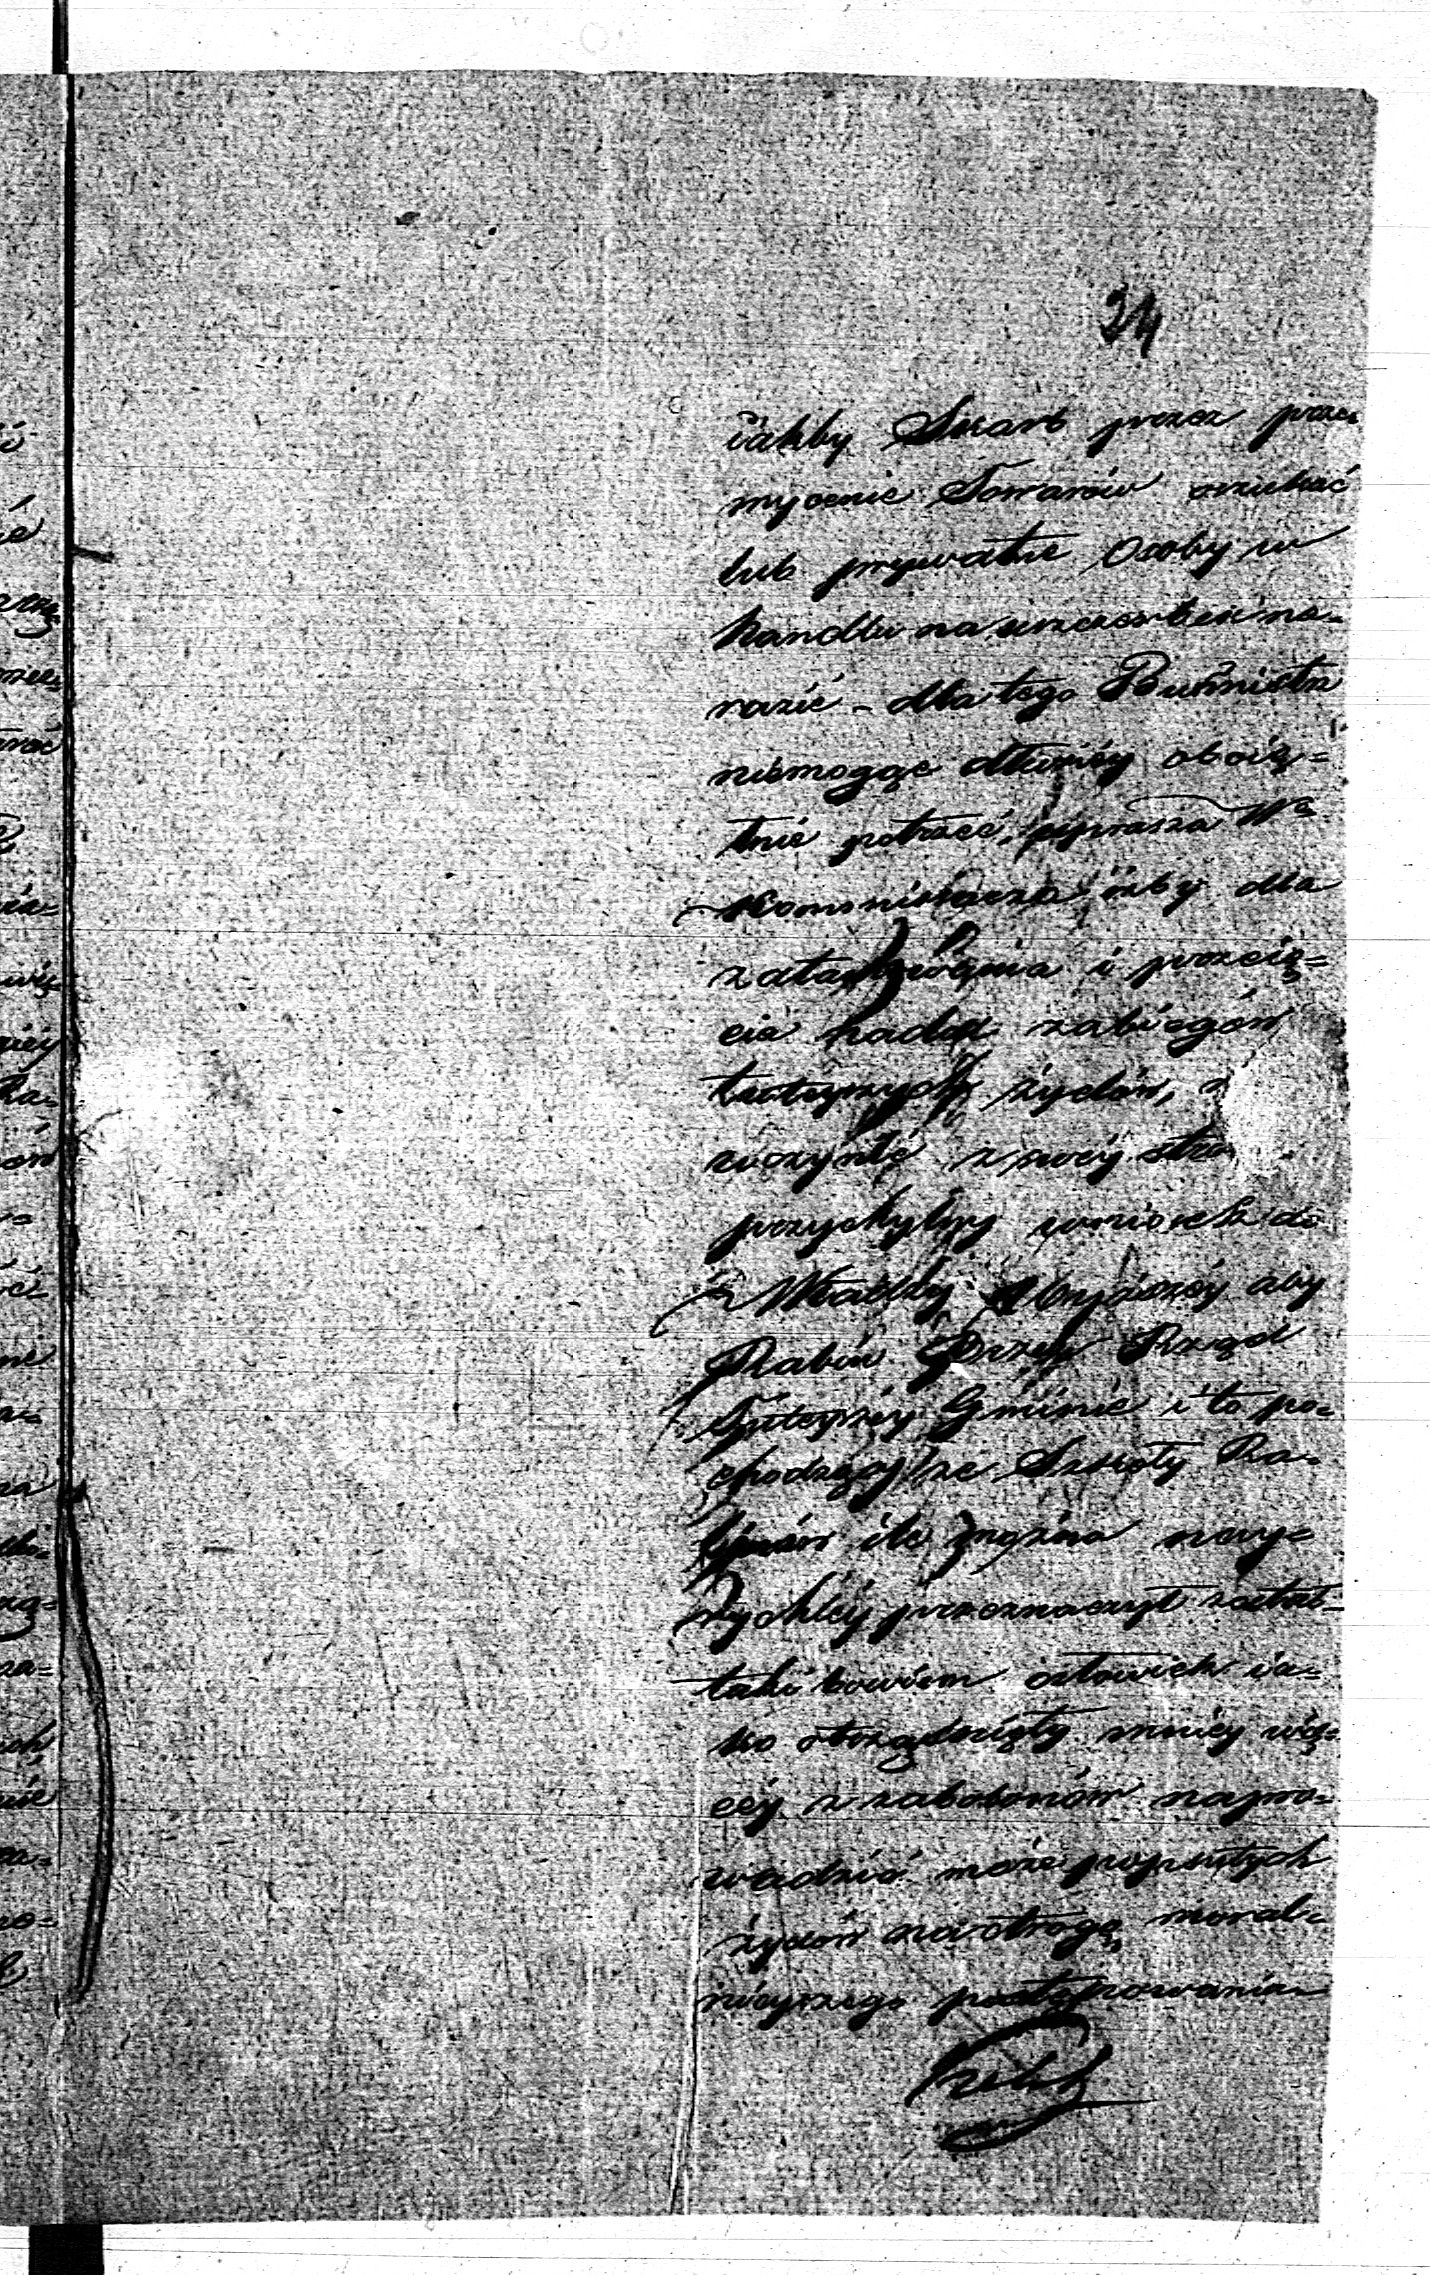 34
iakby Skarb przez prze
mycenie Towarów oszukać
lub prywatne Osoby w
handlu na uszczerbek na-
razić – dla tego Burmistrz
niemogąc dłużéy oboię-
tnie patrzeć, uprasza Wo
Kommissarza iżby dla
zatamowania i przecię-
cia nadal zabiegów
tuteyszych żydów,
uczynić z swéy stro
przychylny wniosek do
Władzy Wyższéy aby
Rabin Przez Rząd
Tuteyszéy Gminie i to po-
chodzący ze Szkoły Ra-
binów ile można nay-
rychléy przeznaczył został
taki bowiem człowiek ia-
ko otrząśnięty mniéy wię-
céy z zabobonów napro-
wadzić może popsutych
żydów na drogę moral-
nieyszego postępowania